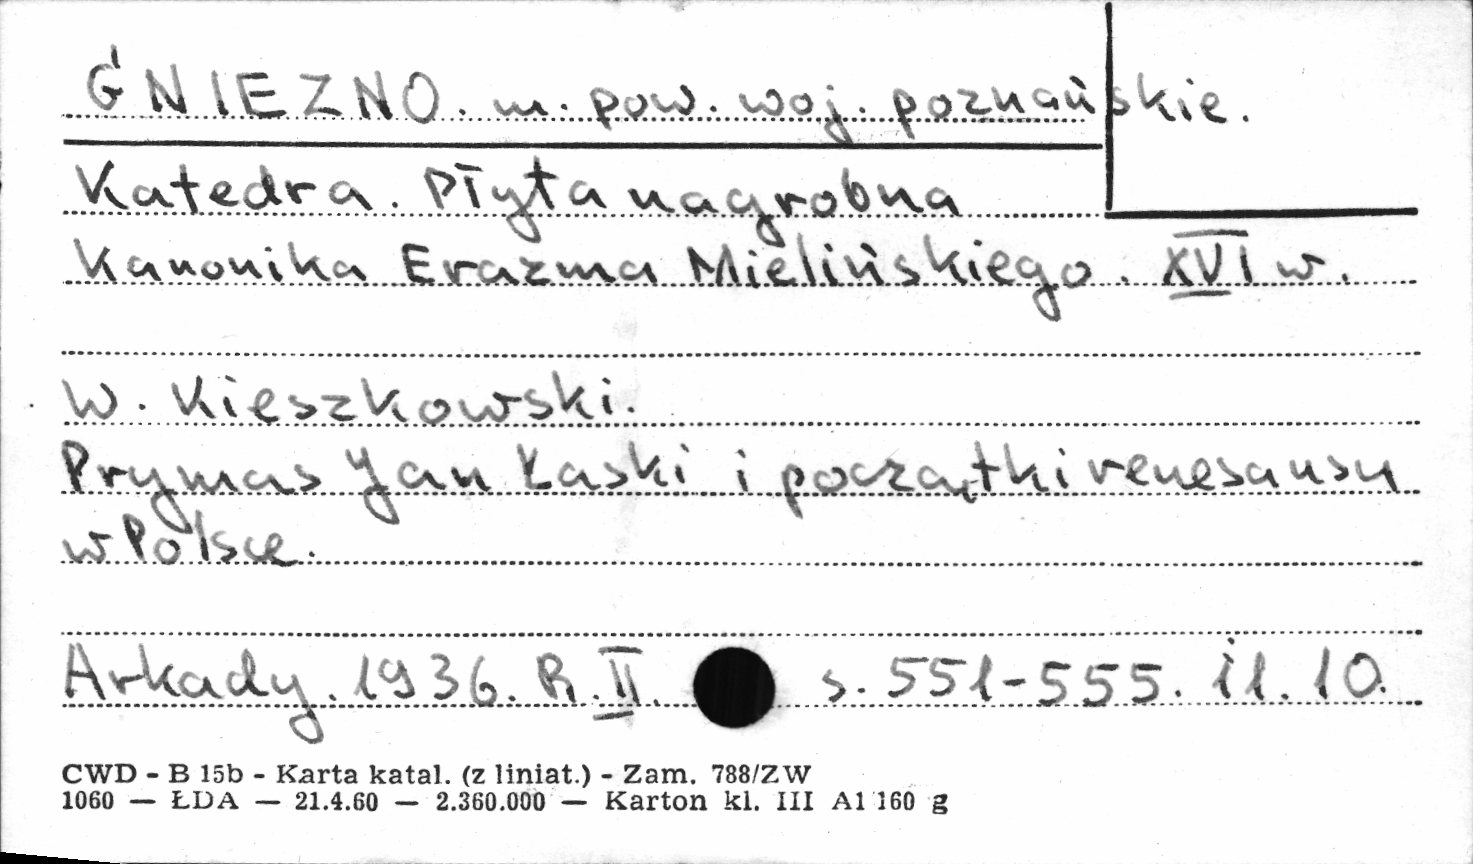 GNIEZNO. m. pow. woj. poznańskie.
Katedra. Płyta nagrobna
Kanonika Erazma Mielińskiego. XVI w.
W. Kieszkowski.
Prymas Jan Łaski i początki renesansu
w Polsce.
Arkady. 1936. R. II. s. 551-555. il. 10.
CWD - B 15b - Karta katal. (z liniat.) - Zam. 788/ZW
1060 — ŁDA — 21.4.60 — 2.360.000 — Karton kl. III A1 160 g